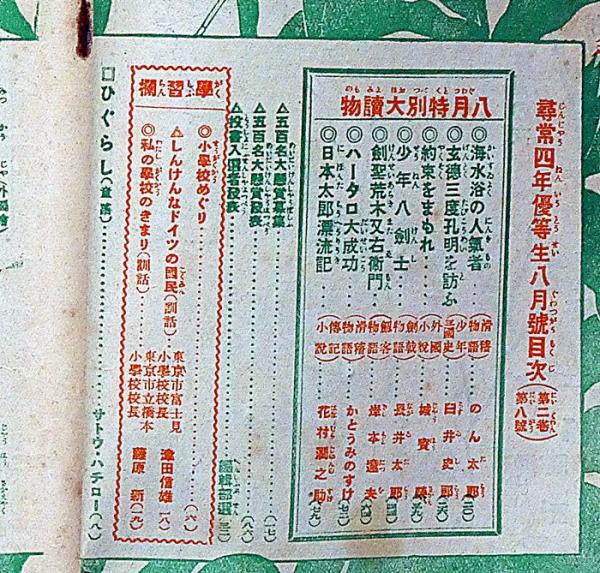 尋常四年優等生八月號目次(第二卷第八號)
八月特別大讀物
◎海水浴の人氣者 滑稽物語 のん太郎
◎玄德三度孔明を訪ふ 少年三國史 臼井史郎
◎約束をまもれ 外國小說
◎少年八劍士 劍戟物語 長井太郎
◎劍聖荒木又右衞門 劍客物語 岸本遠夫
◎ハータロ大成功 滑稽物語 かとうみのすけ
◎日本太郎漂流記 傳記小說 花村潤之助
△五百名大懸賞募集
△五百名大懸賞發表
△投書入選者發表 編輯部選
學習欄
◎小學校めぐり (六)
△しんけんなドイツの國民(訓話) 東京市富士見小學校校長 逢田信雄(一八)
◎私の學校のきまり(訓話) 東京市立橋本小學校校長 藤原新(一九)
□ひぐらし(童謠) サトウ・ハチロー(八)